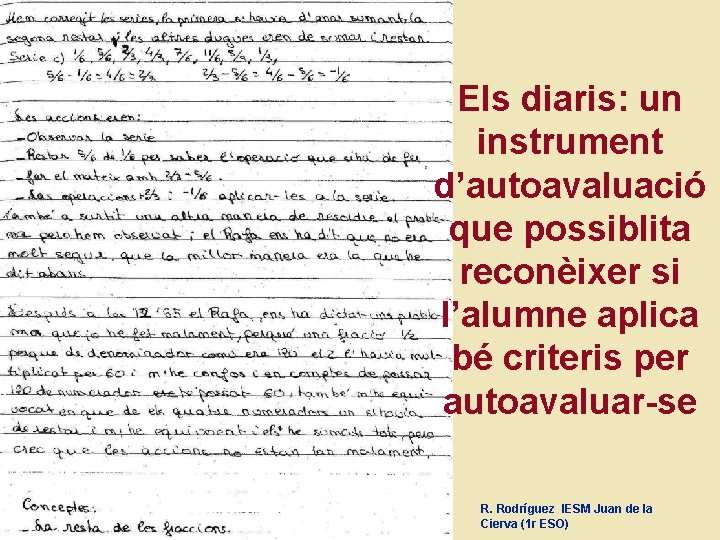 Hem corregit les series, la primera s'havia d'anar sumant, la
segona restar i les altres dugues eren de sumar i restar.
Serie c) 1/6, 5/6, 2/3, 4/3, 7/6, 11/6, 5/3, 1/3,
5/6 - 1/6 = 4/6 = 2/3 2/3 - 5/6 = 4/6 - 5/6 = -1/6
Les accions eren:
- Observar la serie
- Restar 5/6 de 1/6 per saber l'operació que s'ha de fer
- fer el mateix amb 2/3
- Les operacions 2/3 i -1/6 aplicar-les a la serie.
També a surtit una altra manera de resoldre el proble-
ma pero hem observat i el Rafa ens ha dit que no era
molt segur, que la millor manera era la que he
dit abans.
Després a les 12'35 el Rafa, ens ha dictat un proble-
ma que jo he fet malament, perqué una fracio 1/2
perque de denominador comú era 120 el 2 l'havia mul-
tiplicat per 60 i m'he confos i en comptes de possar
120 de numerador possat 60, també m'he equi-
vocat en que de els quatre numeradors un s'havia
de restar i m'he equivocat i els he sumats tots, pero
crec que les accions no estan tan malament.
Conceptes:
- La resta de les fraccions.
Els diaris: un
instrument
d'autoavaluació
que possiblita
reconèixer si
l'alumne aplica
bé criteris per
autoavaluar-se
R. Rodríguez IESM Juan de la
Cierva (1r ESO)